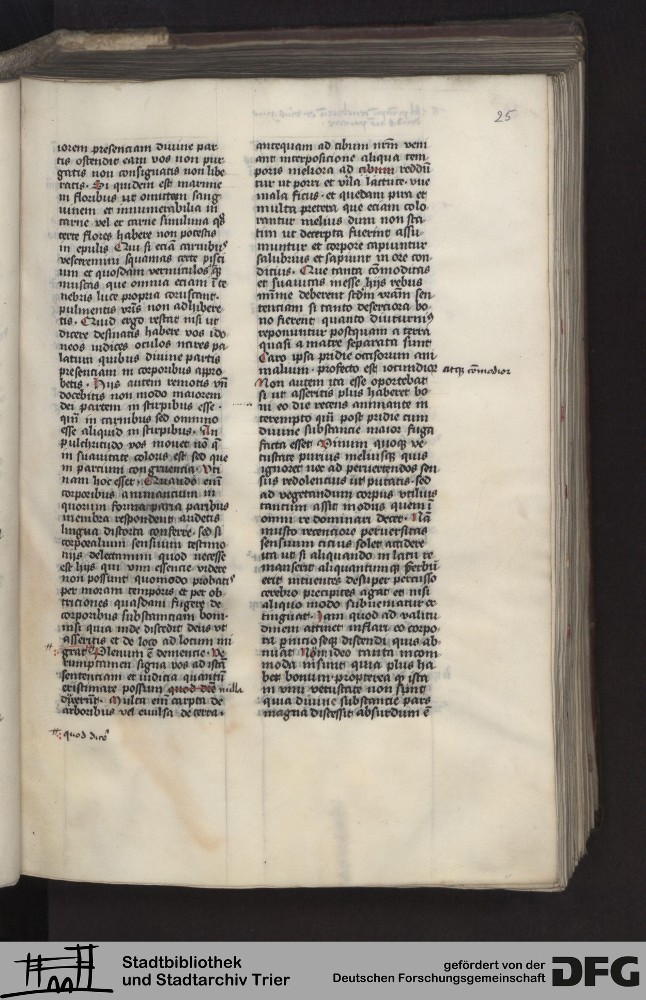 25
iorem presentiam diuine par
tis ostendit eam vos non pur
gatis non consignatis non libe
ratis. Si quidem est marime
in floribus ut omittam sang
uinem et innumerabilia in
carne vel ex carne simillima
certe flores habere non potestis
in epulis Qui si etiā carnibꝰ
vesceremini squamas certe pisci
um et quosdam vermiculos
muscas que omnia etiam ī te
nebris luce propria coruscant.
pulmentis vr̄is non adhibere
tis. Quid ergo restat nisi ut
dicere desinatis habere vos ido
neos iudices oculos nares pa
latum quibus diuine partis
presentiam in corporibus appro
betis. Hijs autem remotis vn̄
docebitis non modo maiorem
dei partem in stirpibus esse.
qm̄ in carnibus sed omnino
esse aliquid in stirpibus. An
pulchritudo vos mouet nō q̄
in suauitate coloris est sed que
in partium congruentia. Uti
nam hoc esset. Quando enī
corporibus animantium in
quorum forma paria paribus
membra respondent audetis
ligna distorta conferre. sed si
corporalium sensuum testimo
nijs delectamini quod necesse
est hijs qui vim essentie videre
non possunt quomodo probatꝭ
per moram temporis et per ob
triciones quasdam fugere de
corporibus substantiam boni
nisi quia inde discedit deus ut
asseritis et de loco ad locum mi
grat Plenum ē dementie. Ve
rumptamen signa vos ad istā
sententiam et iudicia quantū
existimare possum quod dcē nulla
duxerūt. Multa enī carpta de
arboribus vel euulsa de terra.
quod dicē
antequam ad cibum nr̄m veni
ant interposicione aliqua tem
poris meliora ad cibum reddū
tur ut porri et
mala ficus. et quedam pira et
multa preterea que eciam colo
rantur melius dum non sta
tim ut decerpta fuerint assu
muntur et corpore capiuntur
salubrius et sapiunt in ore con
ditius. Que tanta cōmoditas
et suauitas inesse hijs rebus
minime deberent scdm vr̄am sen
tenciam si tanto deserciora bo
no fierent quanto diuturniꝰ
reponuntur postquam a terra
quasi a matre separata sunt
Caro ipsa pridie occisorum ani
malium. profecto est iocundior atqꝫ cōmodior
Non autem ita esse oportebat
si ut asseritis plus haberet bo
ni eo die recens animante in
terempto qm̄ post pridie cum
diuine substantie maior fuga
facta esset Vinum quoqꝫ ve
tustate purius meliusqꝫ quis
ignoret nec ad peruertendos sen
sus redolencius ut putatis. sed
ad vegetandum corpus utilius
tantum assit modus quem ī
omni re dominari decet. Nā
musto recenciore peruersitas
sensuum citius solet accidere
ita ut si aliquando in lacu re
manserit aliquantumqꝫ ferbu
erit intuentes desuper percusso
cerebro precipites agat et nisi
aliquo modo subueniatur ex
tinguat. Jam quod ad valitu
dinem attinet inflari eo corpo
ra perniciosaqꝫ distendi quis ab
nuat Nūm ideo tanta incom
moda insunt quia plus ha
bet bonum. propterea qꝫ ista
in vini vetustate non sunt
quia diuine substantie pars
magna discessit absurdum ē
Stadtbibliothek
und Stadtarchiv Trier
gefördert von der
Deutschen Forschungsgemeinschaft
DFG